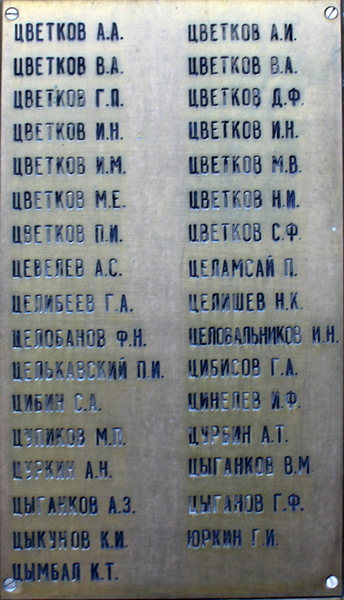 ЦВЕТКОВ А.А.
ЦВЕТКОВ В.А.
ЦВЕТКОВ Г.П.
ЦВЕТКОВ И.Н.
ЦВЕТКОВ И.М.
ЦВЕТКОВ М.Е.
ЦВЕТКОВ П.И.
ЦЕВЕЛЕВ А.С.
ЦЕЛИБЕЕВ Г.А.
ЦЕЛОБАНОВ Ф.Н.
ЦЕЛЬКАВСКИЙ П.И.
ЦИБИН С.А.
ЦУПИКОВ М.П.
ЦУРКИН А.Н.
ЦЫГАНКОВ А.З.
ЦЫКУНОВ К.И.
ЦЫМБАЛ К.Т.
ЦВЕТКОВ А.И.
ЦВЕТКОВ В.А.
ЦВЕТКОВ Д.Ф.
ЦВЕТКОВ И.Н.
ЦВЕТКОВ М.В.
ЦВЕТКОВ Н.И.
ЦВЕТКОВ С.Ф.
ЦЕЛАМСАЙ П.
ЦЕЛИШЕВ Н.К.
ЦЕЛОВАЛЬНИКОВ И.Н.
ЦИБИСОВ Г.А.
ЦИНЕЛЕВ И.Ф.
ЦУРБИН А.Т.
ЦЫГАНКОВ В.М.
ЦЫГАНОВ Г.Ф.
ЮРКИН Г.И.